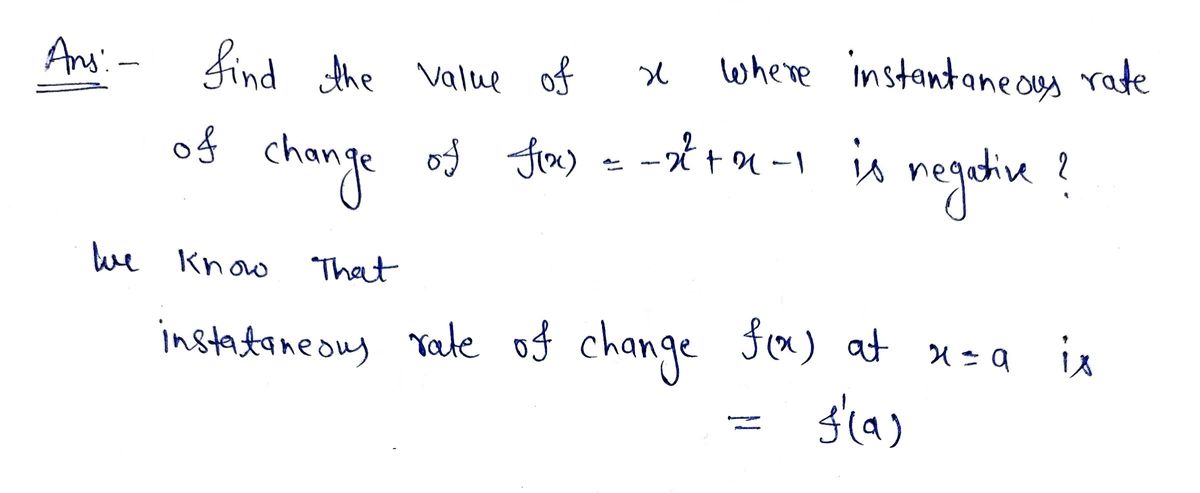 Ans:- find the value of x where instantaneous rate
of change of f(x) = -x² + x - 1 is negative ?
We know That
instataneous rate of change f(x) at x = a is
= f'(a)